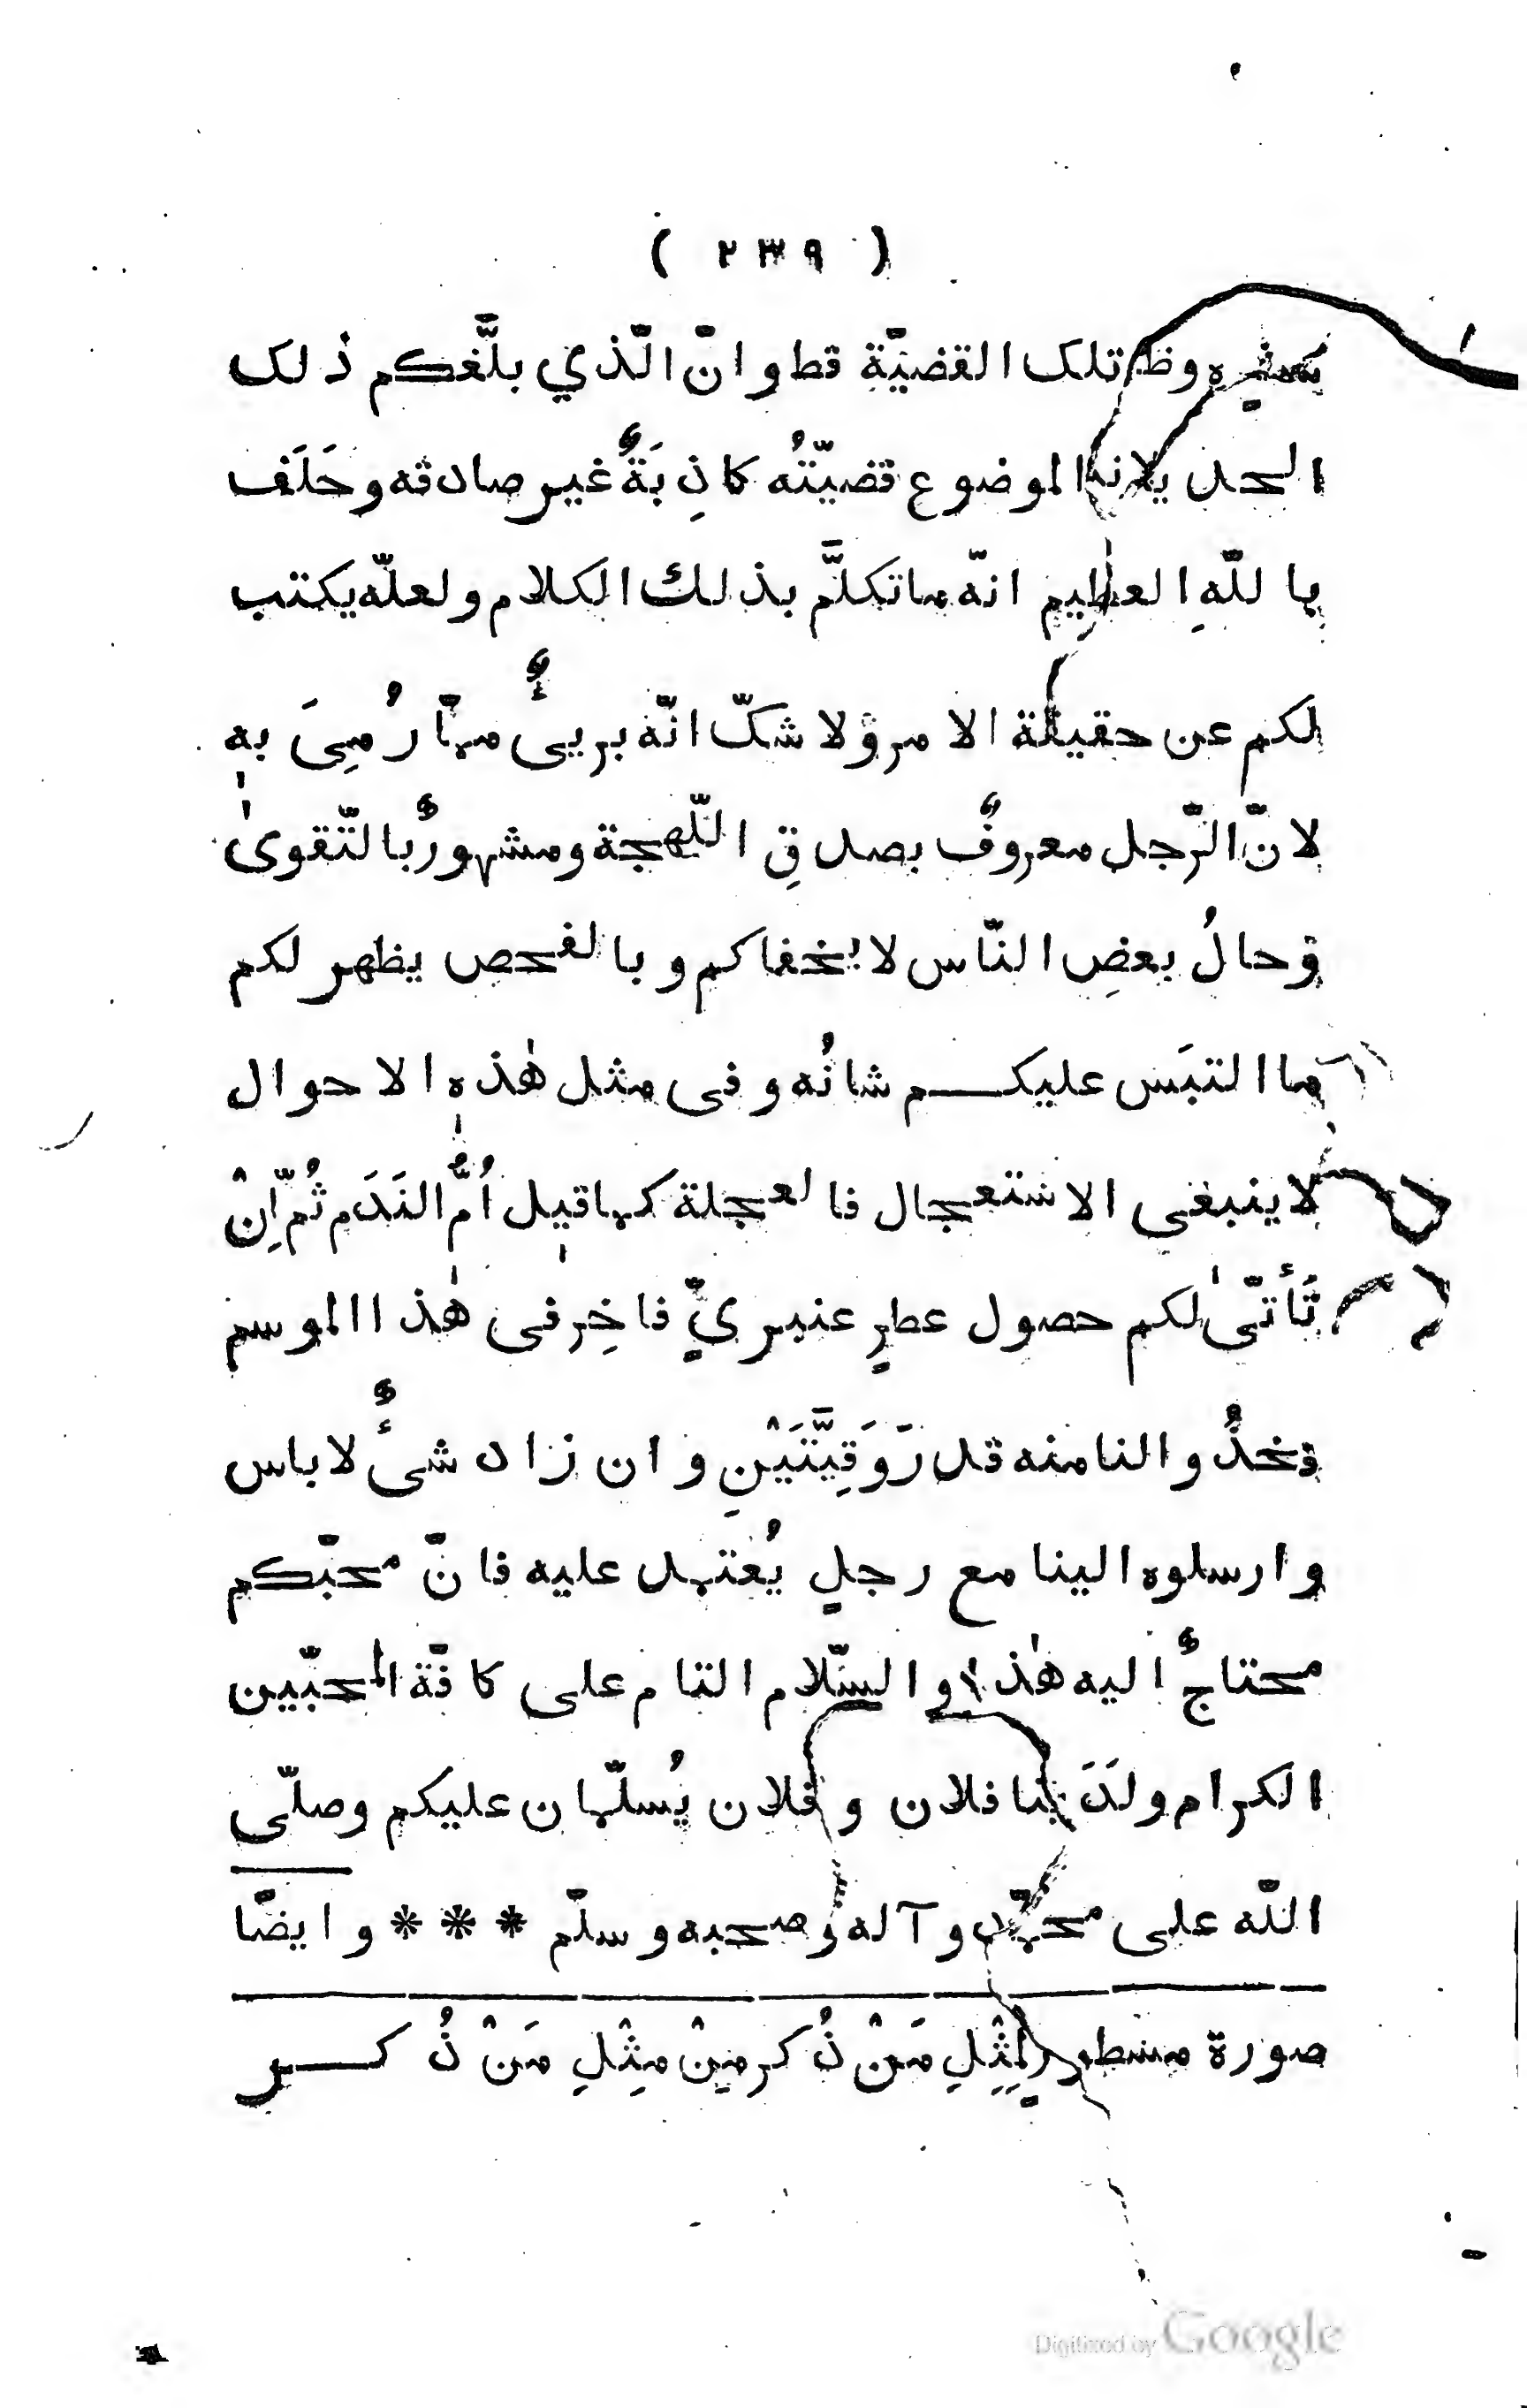 ( ٢٣٩ )
تلك القضيّة قط وانّ الّذي بلَّغكم ذلك
الموضوع قضيّتُه كاذِبَةٌ غير صادقه وحَلَف
باللّهِ العظيم انّه ماتكلَّم بذلك الكلام ولعلّه يكتب
لكم عن حقيقة الامر ولا شكّ انّه بريئٌ ممّا رُمِىَ به
لانّ الرّجل معروفٌ بصدقِ اللّهجة ومشهورٌ بالتّقوىٰ
وحالُ بعضِ النّاس لا يخفاكم وبالفحص يظهر لكم
ما التبَس عليكم شانُه وفى مثل هٰذهٖ الاحوال
لا ينبغى الاستعجال فالعجلة كما قيل اُمُّ النَدَم ثُمّ اِنْ
تَأتّىٰ لكم حصول عطرٍ عنبريٍّ فاخِر فى هٰذا الموسم
فخذُوا لنا منه قدرَ وَقِيَّتَيْنِ وان زاد شئٌ لاباس
وارسلوه الينا مع رجلٍ يُعتمد عليه فانّ محبّكم
محتاجٌ اليه هٰذا والسّلام التام على كافّة المحبّين
الكرام ولدَينا فلان وفلان يُسلّمان عليكم وصلّى
اللّه على محمّد وآله وصحبه وسلّم * * * وايضًا
صورة مسطورٍ لِمِثِلِ مَنْ ذُكر مِنْ مِثِلِ مَنْ ذُكر
Digitized by Google